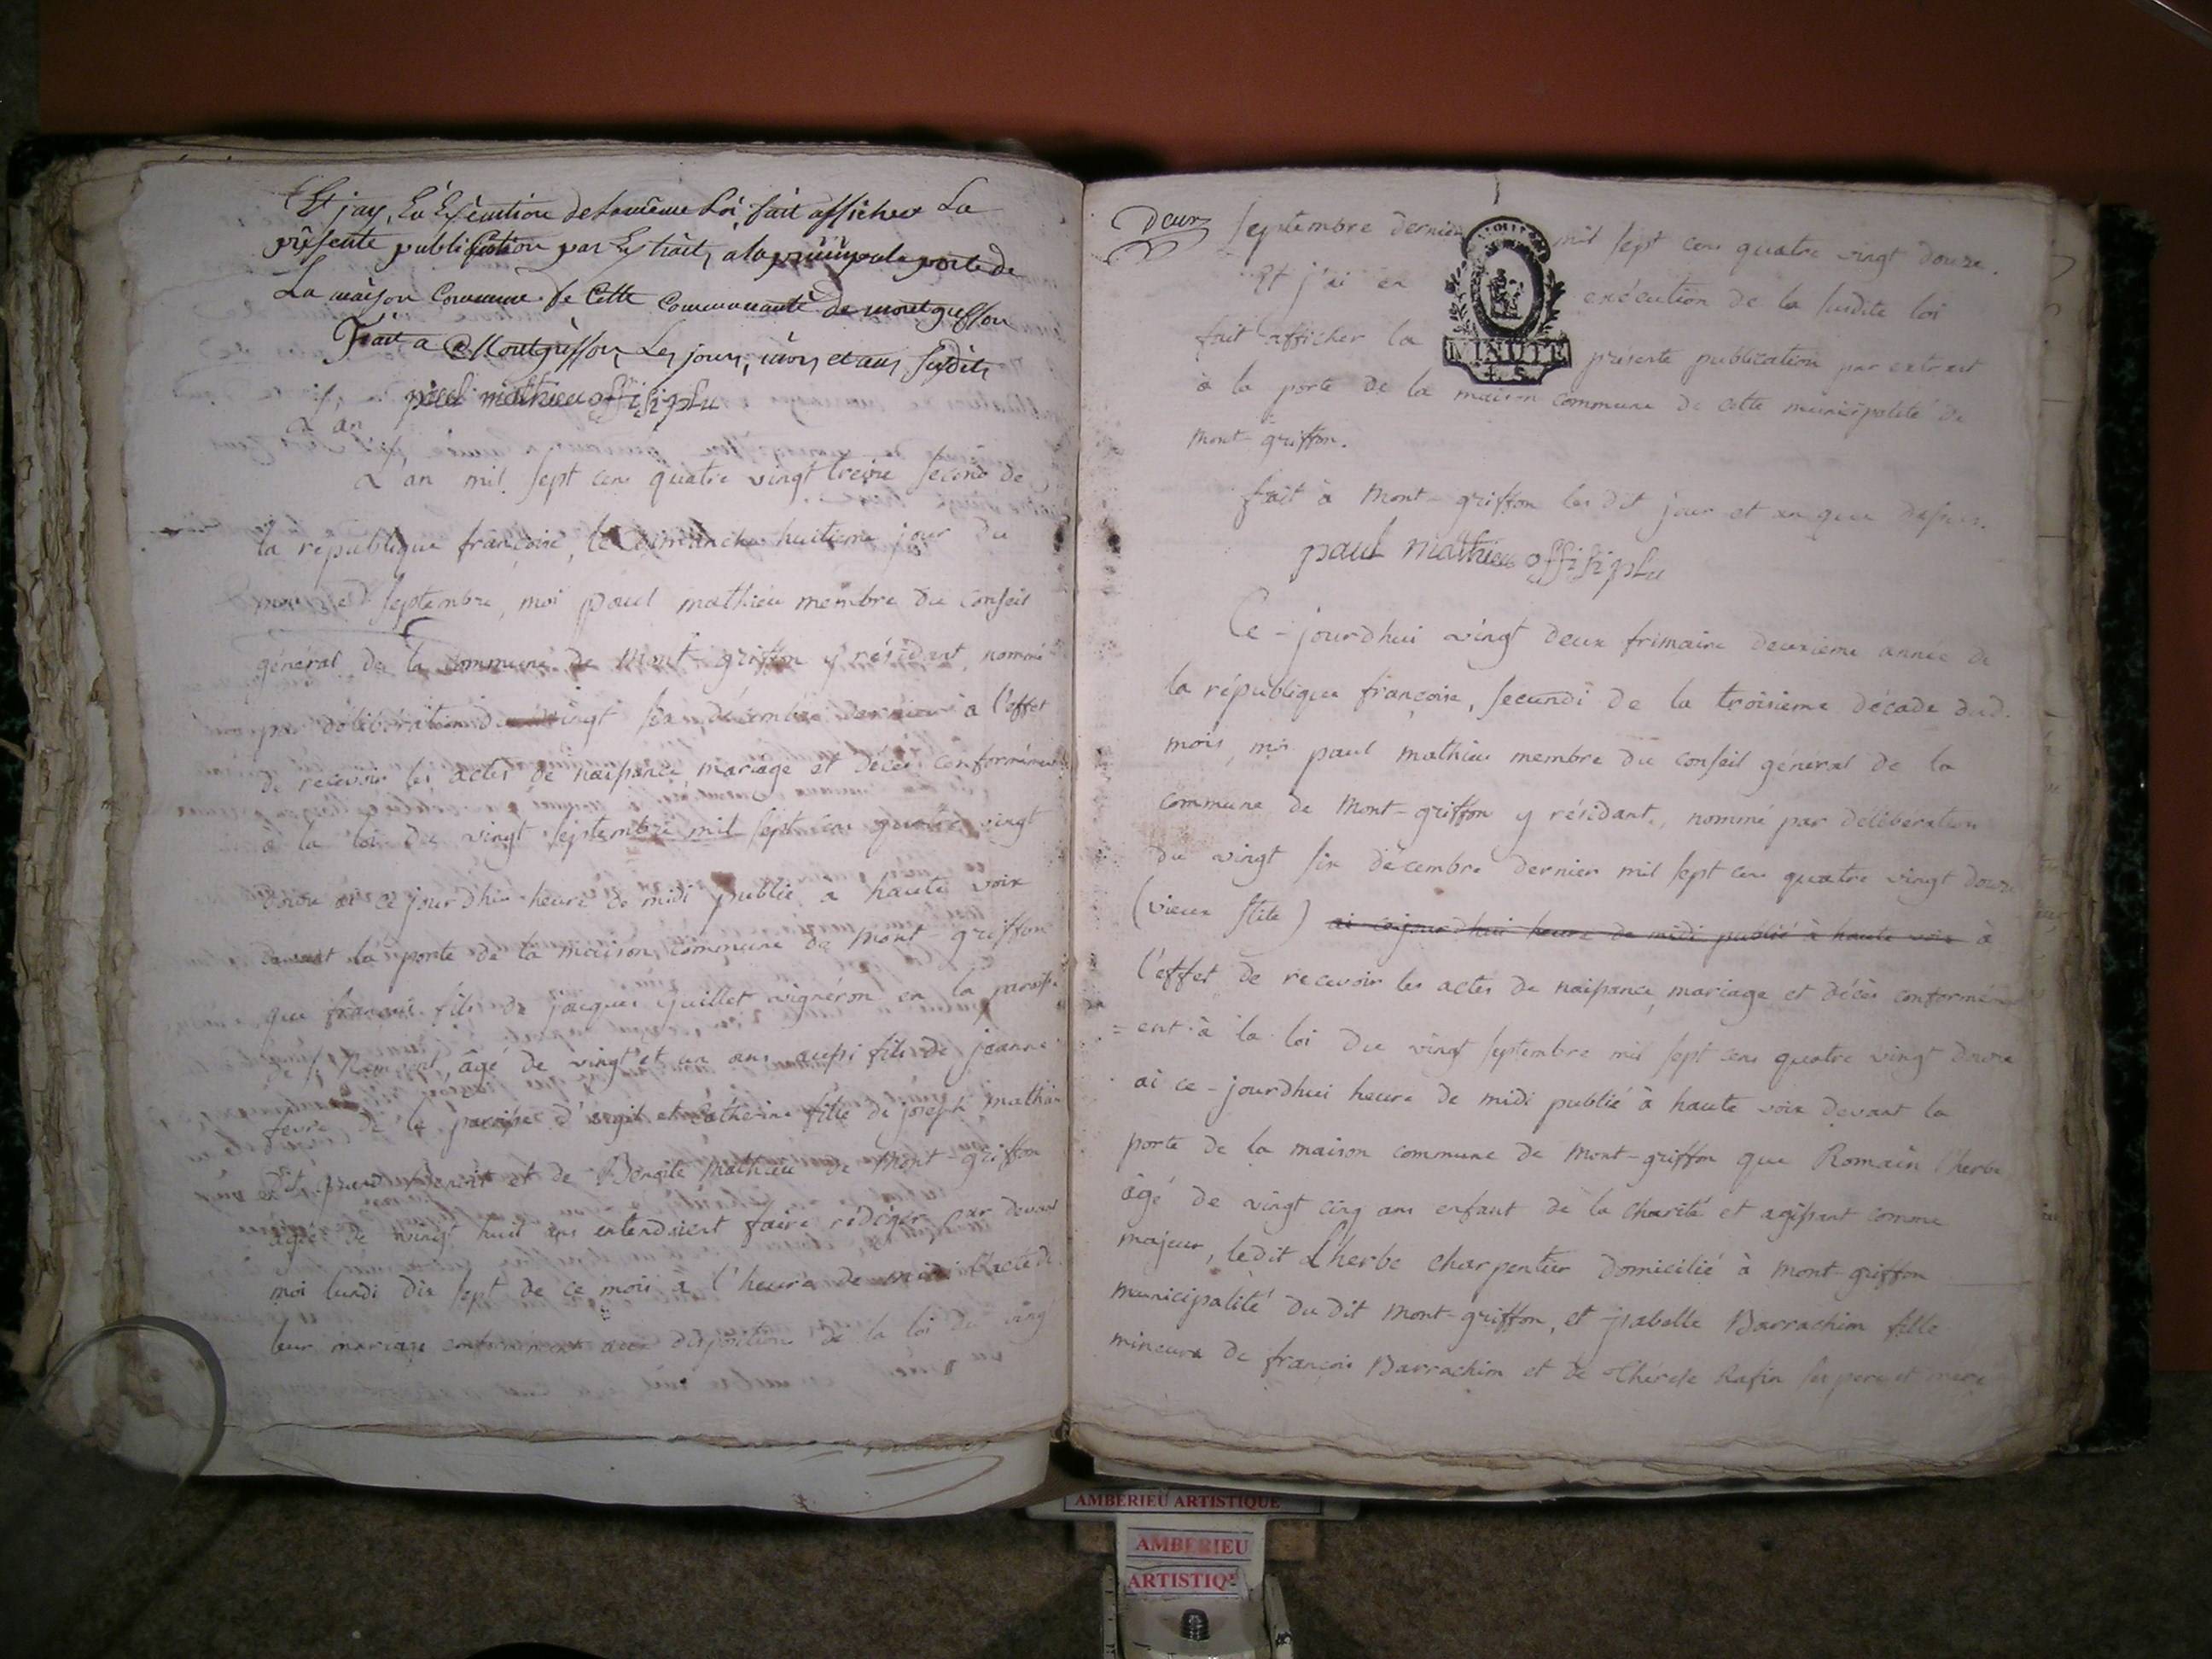 Et jay, En Exécution de la même Loi, fait afficher La
présente publication par Extrait, a la principale porte de
La maison Commune de Cette Communauté de montgriffon
Fait a Montgriffon Les jours, mois et an susdits
paul mathieu offisi plu
L'an
L'an mil sept cens quatre vingt treize second de
la republique françoise, le dimanche huitieme jour du
septembre, moi paul mathieu membre du conseil
général de la commune de Mont-griffon y résidant, nommé
par délibération du vingt six décembre dernier à l'effet
de recevoir les actes de naissance mariage et décès conformément
à la loi du vingt septembre mil sept cens quatre vingt
douze ai ce jourdhui heure de midi publié a haute voix
devant la porte de la maison commune de Mont griffon
que françois fils de jacques juillet vigneron en la paroisse
de st Rambert, âgé de vingt et un ans aussi fils de jeanne
fevre de la paroisse d'argit et Catherine fille de joseph mathieu
dit grand benoit et de Benoite Mathieu de Mont-griffon
agée de vingt huit ans entendoient faire rédiger par devant
moi lundi dix sept de ce mois a l'heure de midi l'acte de
leur mariage conformément aux disposition de la loi du vingt
Deux
septembre dernier mil sept cens quatre vingt douze.
Et j'ai en exécution de la susdite loi
fait afficher la présente publication par extrait
à la porte de la maison commune de cette municipalité de
Mont-griffon.
MINUTE
fait à Mont-griffon les dit jour et an que dessus.
paul mathieu offisi plu
Ce-jourdhui vingt deux frimaire deuxieme année de
la république françoise, secundi de la troisieme décade dud.
mois, moi paul mathieu membre du conseil général de la
commune de Mont-griffon y résidant, nommé par délibération
du vingt six décembre dernier mil sept cens quatre vingt douze
(vieux stile) ai cejourdhui heure de midi publié à haute voix à
l'effet de recevoir les actes de naissance, mariage et décès conformém
= ent à la loi du vingt septembre mil sept cens quatre vingt douze
ai ce-jourdhui heure de midi publié à haute voix devant la
porte de la maison commune de Mont-griffon que Romain l'herbe
âgé de vingt cinq ans enfant de la charité et agissant comme
majeur, ledit L'herbe charpentier domicilié à Mont-griffon
municipalité du dit Mont-griffon, et isabelle Barrachin fille
mineure de françois Barrachin et de Thérese Rafin ses pere et mere
AMBERIEU ARTISTIQUE
AMBERIEU
ARTISTIQUE